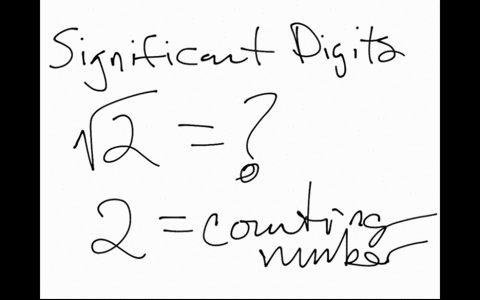 Significant Digits
√2 = ?
2 = counting
number